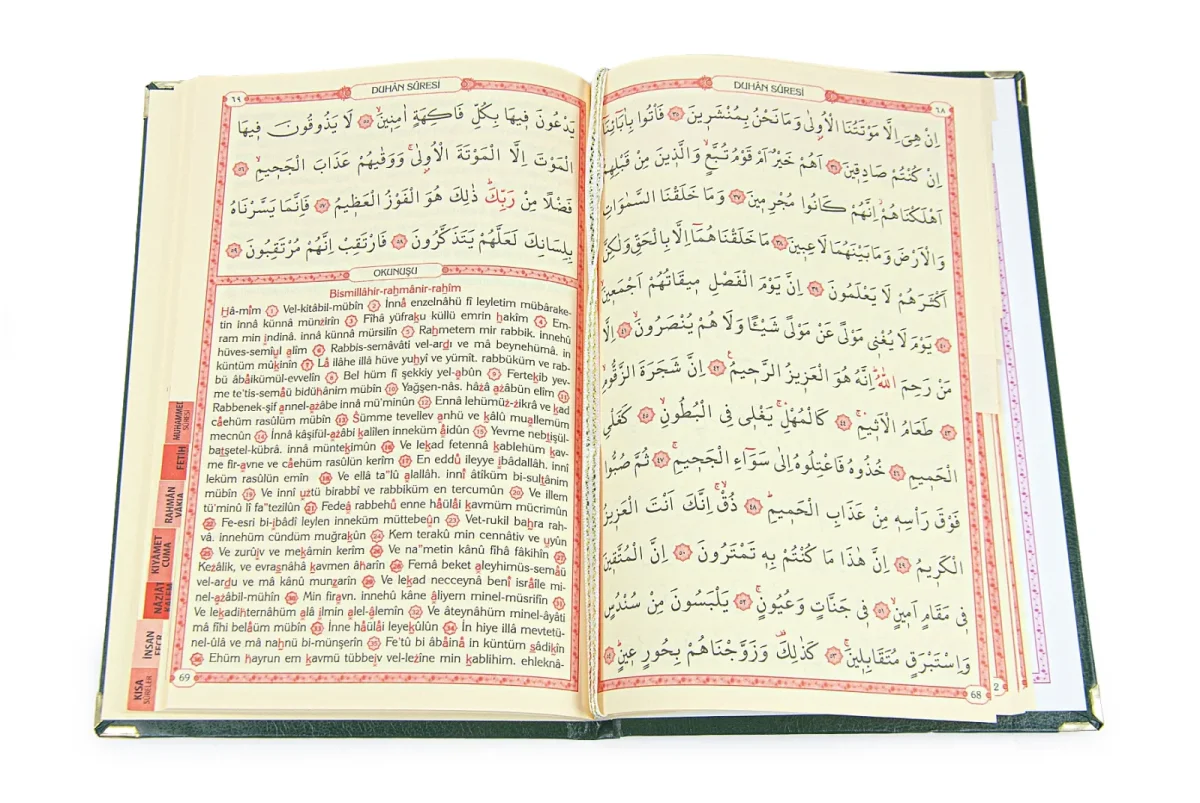 DUHÂN SÛRESİ
٦٨
اِنْ هِىَ اِلَّا مَوْتَتُنَا الْاُو۫لٰى وَمَا نَحْنُ بِمُنْشَر۪ينَ ﴿٣٥﴾ فَأْتُوا بِاٰبَٓائِنَٓا
اِنْ كُنْتُمْ صَادِق۪ينَ ﴿٣٦﴾ اَهُمْ خَيْرٌ اَمْ قَوْمُ تُبَّعٍۙ وَالَّذ۪ينَ مِنْ قَبْلِهِمْ
اَهْلَكْنَاهُمْۘ اِنَّهُمْ كَانُوا مُجْرِم۪ينَ ﴿٣٧﴾ وَمَا خَلَقْنَا السَّمٰوَاتِ
وَالْاَرْضَ وَمَا بَيْنَهُمَا لَاعِب۪ينَ ﴿٣٨﴾ مَا خَلَقْنَاهُمَٓا اِلَّا بِالْحَقِّ وَلٰكِنَّ
اَكْثَرَهُمْ لَا يَعْلَمُونَ ﴿٣٩﴾ اِنَّ يَوْمَ الْفَصْلِ م۪يقَاتُهُمْ اَجْمَع۪ينَ
﴿٤٠﴾ يَوْمَ لَا يُغْن۪ى مَوْلًى عَنْ مَوْلًى شَيْـًٔا وَلَا هُمْ يُنْصَرُونَۙ ﴿٤١﴾ اِلَّا
مَنْ رَحِمَ اللّٰهُۜ اِنَّهُ هُوَ الْعَز۪يزُ الرَّح۪يمُ۟ ﴿٤٢﴾ اِنَّ شَجَرَةَ الزَّقُّومِۙ
﴿٤٣﴾ طَعَامُ الْاَث۪يمِۚ ﴿٤٤﴾ كَالْمُهْلِۚ يَغْل۪ى فِى الْبُطُونِۙ ﴿٤٥﴾ كَغَلْىِ
الْحَم۪يمِ ﴿٤٦﴾ خُذُوهُ فَاعْتِلُوهُ اِلٰى سَوَٓاءِ الْجَح۪يمِۗ ﴿٤٧﴾ ثُمَّ صُبُّوا
فَوْقَ رَأْسِه۪ مِنْ عَذَابِ الْحَم۪يمِۜ ﴿٤٨﴾ ذُقْۙ اِنَّكَ اَنْتَ الْعَز۪يزُ
الْكَر۪يمُ ﴿٤٩﴾ اِنَّ هٰذَا مَا كُنْتُمْ بِه۪ تَمْتَرُونَ ﴿٥٠﴾ اِنَّ الْمُتَّق۪ينَ
ف۪ى مَقَامٍ اَم۪ينٍۙ ﴿٥١﴾ ف۪ى جَنَّاتٍ وَعُيُونٍۚ ﴿٥٢﴾ يَلْبَسُونَ مِنْ سُنْدُسٍ
وَاِسْتَبْرَقٍ مُتَقَابِل۪ينَۚ ﴿٥٣﴾ كَذٰلِكَ۠ وَزَوَّجْنَاهُمْ بِحُورٍ ع۪ينٍۜ ﴿٥٤﴾
68
2
DUHÂN SÛRESİ
٦٩
يَدْعُونَ ف۪يهَا بِكُلِّ فَاكِهَةٍ اٰمِن۪ينَۙ ﴿٥٥﴾ لَا يَذُوقُونَ ف۪يهَا
الْمَوْتَ اِلَّا الْمَوْتَةَ الْاُو۫لٰىۚ وَوَقٰيهُمْ عَذَابَ الْجَح۪يمِۙ ﴿٥٦﴾
فَضْلًا مِنْ رَبِّكَۜ ذٰلِكَ هُوَ الْفَوْزُ الْعَظ۪يمُ ﴿٥٧﴾ فَاِنَّمَا يَسَّرْنَاهُ
بِلِسَانِكَ لَعَلَّهُمْ يَتَذَكَّرُونَ ﴿٥٨﴾ فَارْتَقِبْ اِنَّهُمْ مُرْتَقِبُونَ ﴿٥٩﴾
OKUNUŞU
Bismillâhir-rahmânir-rahîm
Hâ-mîm 1 Vel-kitâbil-mübîn 2 İnnâ enzelnâhü fî leyletim mübârake-
tin innâ künnâ münzirîn 3 Fîhâ yüfraku küllü emrin hakîm 4 Em-
ram min ındinâ. innâ künnâ mürsilîn 5 Rahmetem mir rabbik. innehû
hüves-semîul alîm 6 Rabbis-semâvâti vel-ardı ve mâ beynehümâ. in
küntüm mûkinîn 7 Lâ ilâhe illâ hüve yuhyî ve yümît. rabbüküm ve rab-
bü âbâikümül-evvelîn 8 Bel hüm fî şekkiy yel-abûn 9 Fertekıb yev-
me te'tis-semâü bidühânim mübîn 10 Yağşen-nâs. hâzâ azâbün elîm 11
Rabbenek-şif annel-azâbe innâ mü'minûn 12 Ennâ lehümüz-zikrâ ve kad
câehüm rasûlüm mübîn 13 Sümme tevellev anhü ve kâlû muallemüm
mecnûn 14 İnnâ kâşifül-azâbi kalîlen inneküm âidûn 15 Yevme nebtışül-
batşetel-kübrâ. innâ müntekimûn 16 Ve lekad fetennâ kablehüm kav-
me fir-avne ve câehüm rasûlün kerîm 17 En eddû ileyye ıbâdallâh. innî
leküm rasûlün emîn 18 Ve ellâ ta"lû alallâh. innî âtîküm bi-sultânim
mübîn 19 Ve innî uztü birabbî ve rabbiküm en tercumûn 20 Ve illem
tü'minû lî fa"tezilûn 21 Fedeâ rabbehû enne hâülâi kavmüm mücrimûn
22 Fe-esri bi-ıbâdî leylen inneküm müttebeûn 23 Vet-rukil bahra rah-
vâ. innehüm cündüm muğrakûn 24 Kem terakû min cennâtiv ve uyûn
25 Ve zurûıv ve mekâmin kerîm 26 Ve na"metin kânû fîhâ fâkihîn 27
Kezâlik, ve evrasnâhâ kavmen âharîn 28 Femâ beket aleyhimüs-semâü
vel-ardu ve mâ kânû munzarîn 29 Ve lekad necceynâ benî isrâîle mi-
nel-azâbil-mühîn 30 Min firavn. innehû kâne âliyem minel-müsrifîn 31
Ve lekadihternâhüm alâ ılmin alel-âlemîn 32 Ve âteynâhüm minel-âyâti
mâ fîhi belâüm mübîn 33 İnne hâülâi leyekûlûn 34 İn hiye illâ mevtetü-
nel-ûlâ ve mâ nahnü bi-münşerîn 35 Fe'tû bi âbâinâ in küntüm sâdikîn
36 Ehüm hayrun em kavmü tübbeıv vel-lezîne min kablihim. ehleknâ-
69
MUHAMMED
SÛRESİ
FETİH
RAHMÂN
VÂKIA
KIYÂMET
CUMA
NÂZİÂT
İNSAN
FECR
KISA
SÛRELER